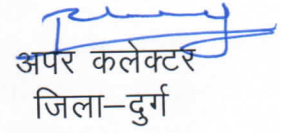 अपर कलेक्टर
जिला–दुर्ग